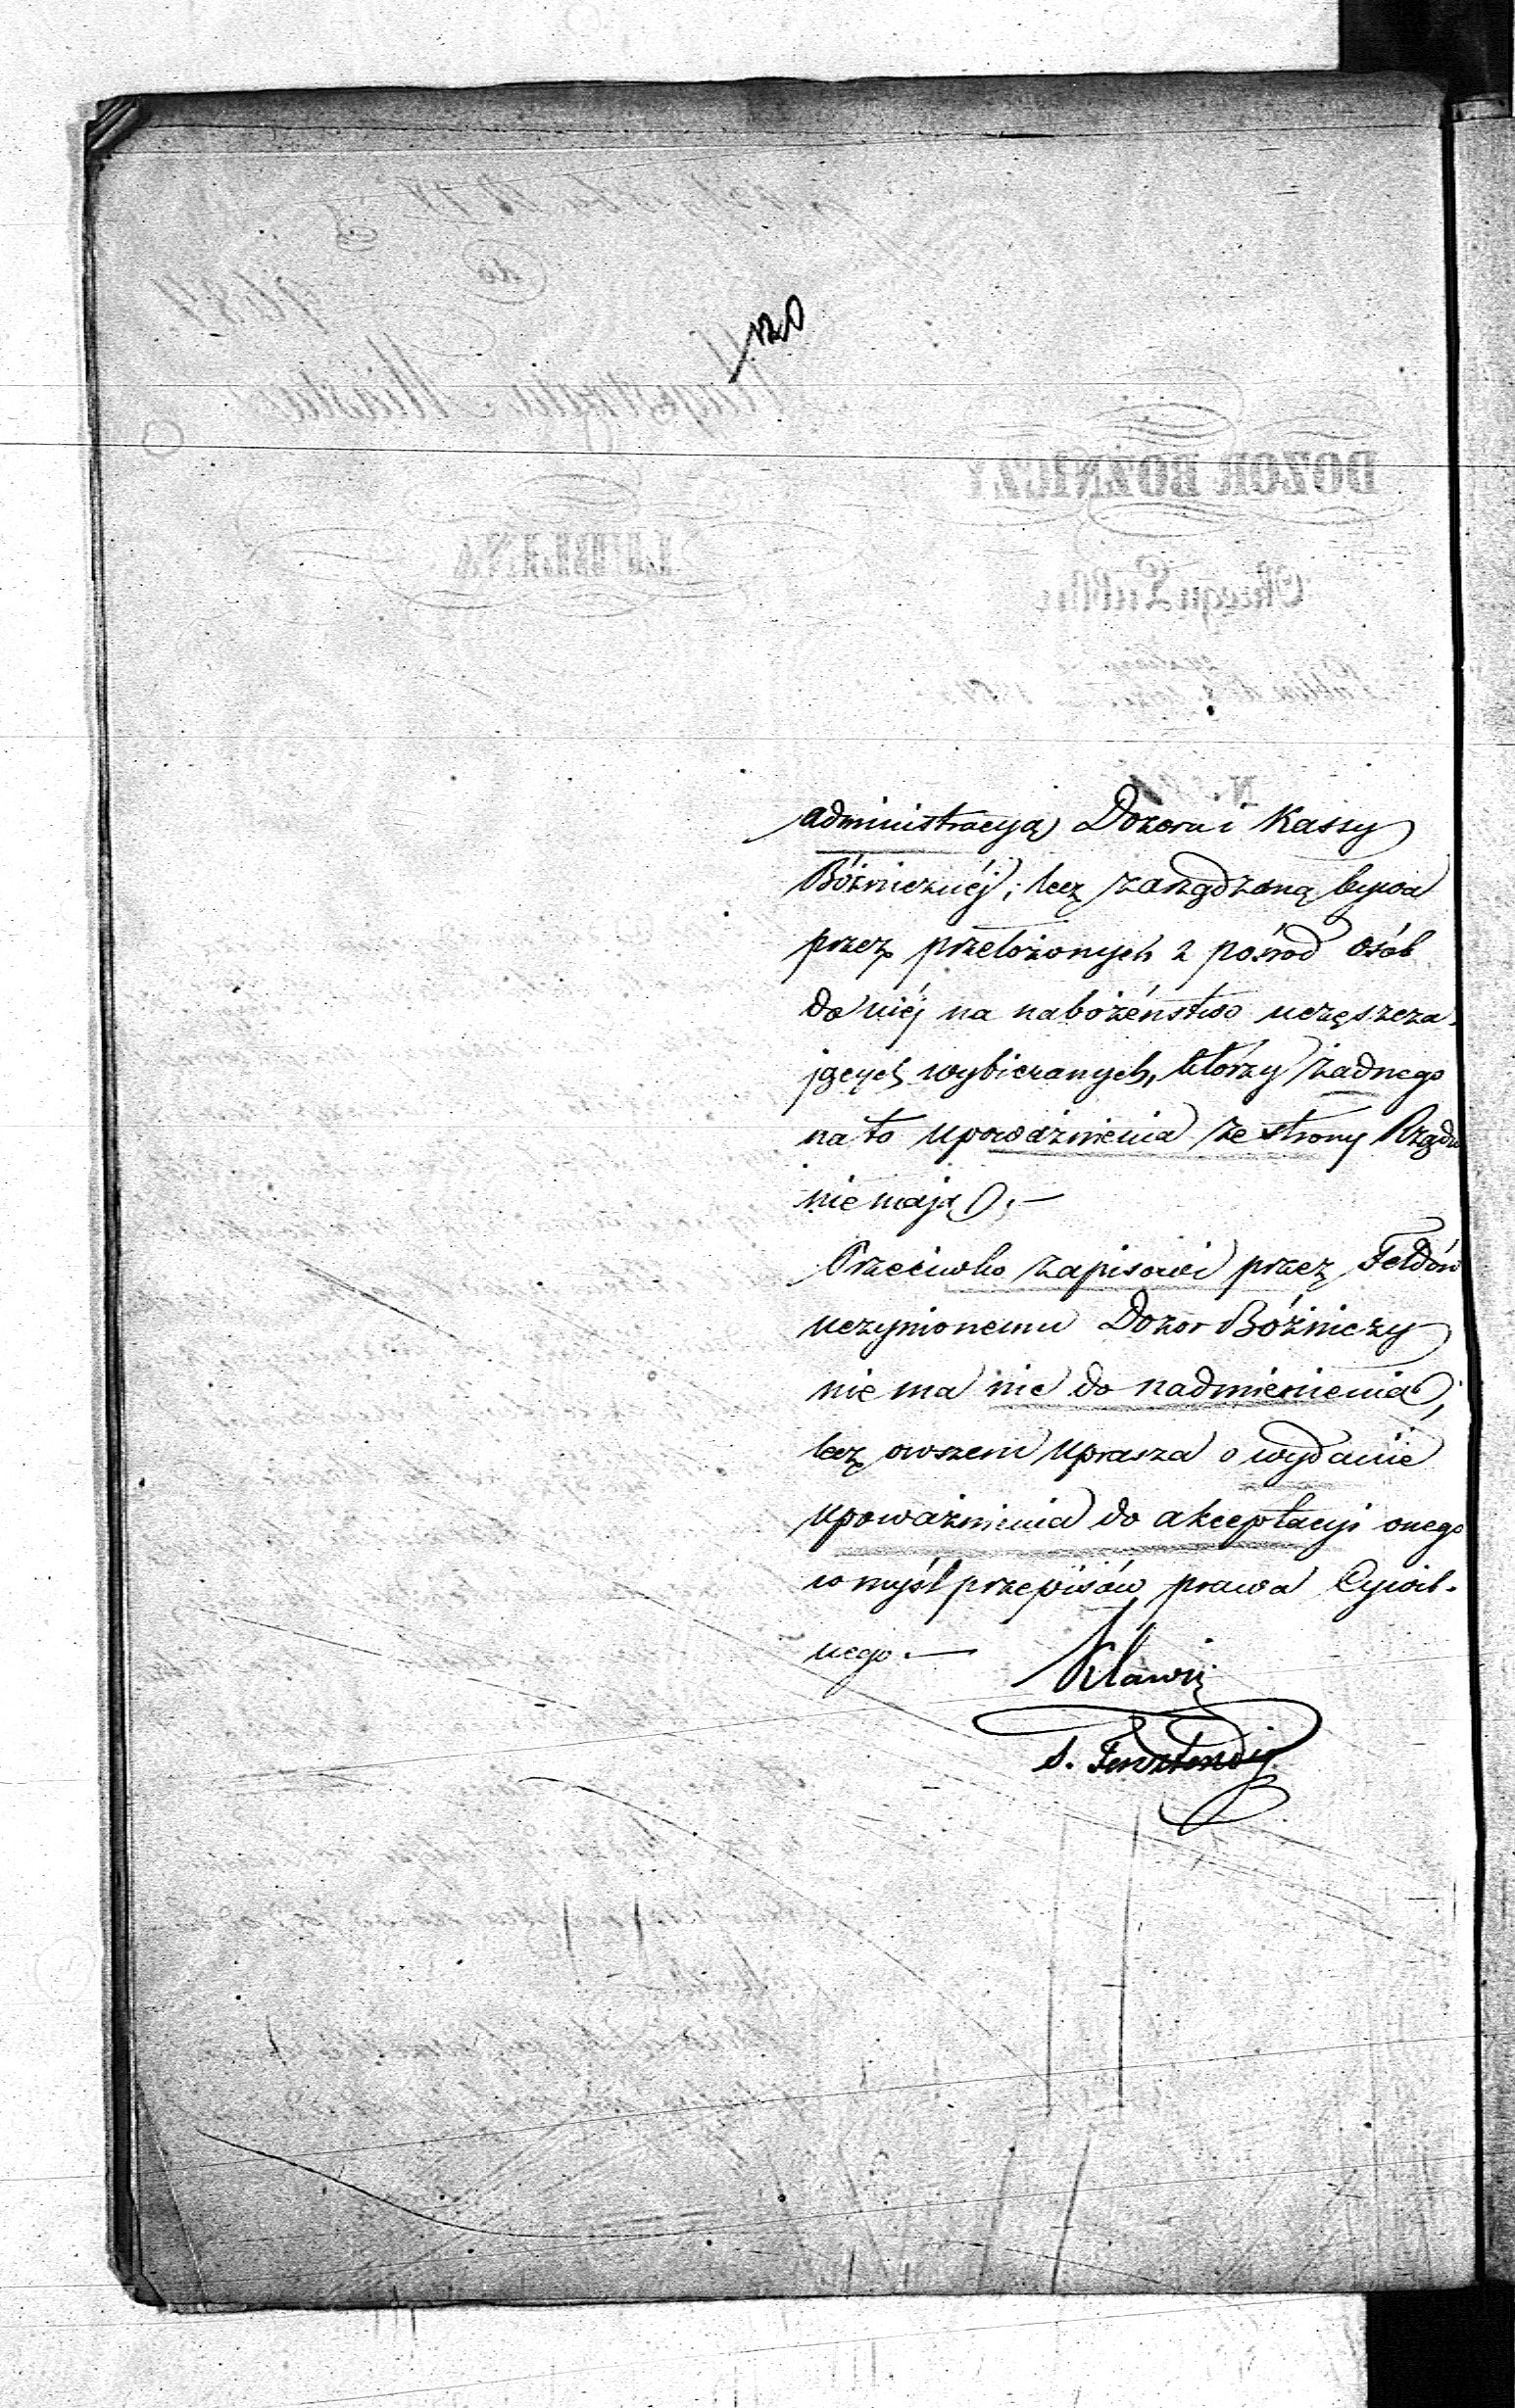 120
administracyą Dozoru i Kassy
Bóżniczéj; lecz zarządzaną bywa
przez przełożonych z pośród osób
do niéj na nabożeństwo uczęszcza-
jących wybieranych, którzy żadnego
na to upoważnienia ze strony Rządu
nie mają.—
Przeciwko zapisowi przez Feldów
uczynionemu Dozor Bóżniczy
nie ma nic do nadmienienia;
lecz owszem uprasza o wydanie
upoważnienia do akceptacyi onego
w myśl przepisów prawa Cywil-
nego.—
S.